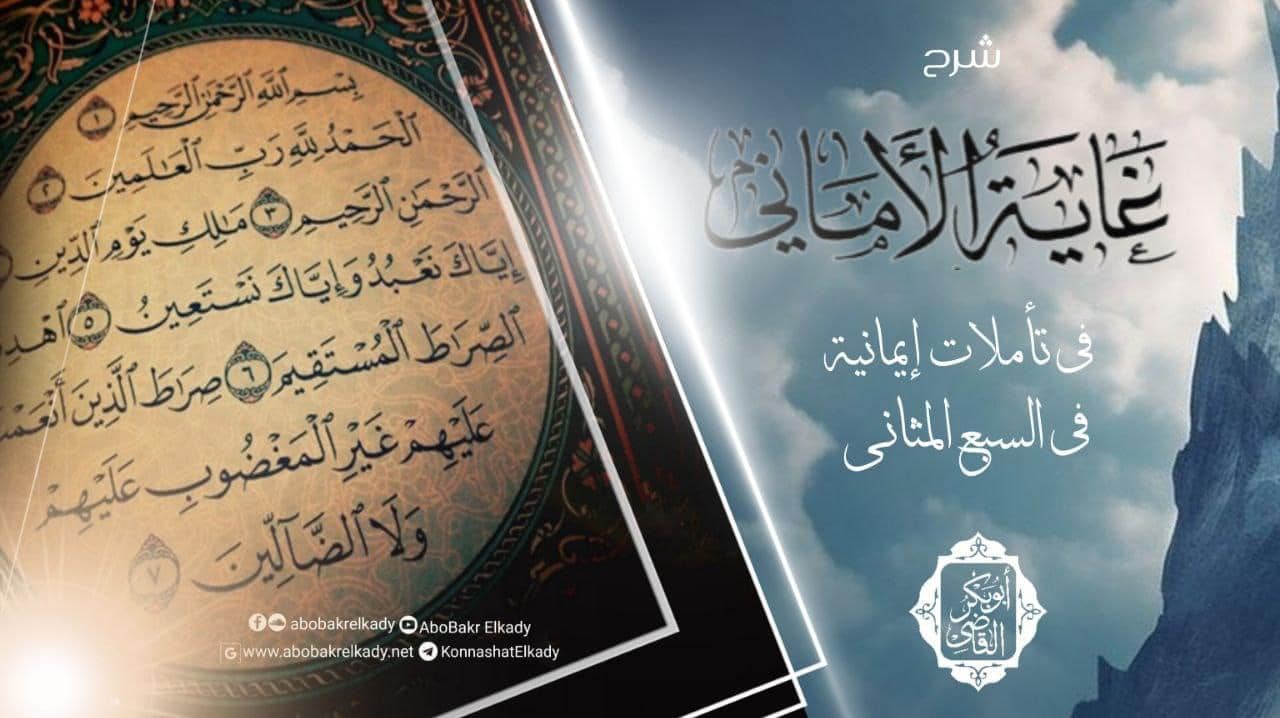 شرح
غَايَةُ الأَمَاني
في تأملات إيمانية
في السبع المثاني
أبوبكر
القاضي
بِسْمِ ٱللَّهِ ٱلرَّحْمَٰنِ ٱلرَّحِيمِ ١
ٱلْحَمْدُ لِلَّهِ رَبِّ ٱلْعَٰلَمِينَ ٢
ٱلرَّحْمَٰنِ ٱلرَّحِيمِ ٣ مَٰلِكِ يَوْمِ ٱلدِّينِ
إِيَّاكَ نَعْبُدُ وَإِيَّاكَ نَسْتَعِينُ ٥ ٱهْدِ
ٱلصِّرَٰطَ ٱلْمُسْتَقِيمَ ٦ صِرَٰطَ ٱلَّذِينَ أَنْعَمْ
عَلَيْهِمْ غَيْرِ ٱلْمَغْضُوبِ عَلَيْهِمْ
وَلَا ٱلضَّآلِّينَ ٧
abobakrelkady AboBakr Elkady
www.abobakrelkady.net KonnashatElkady